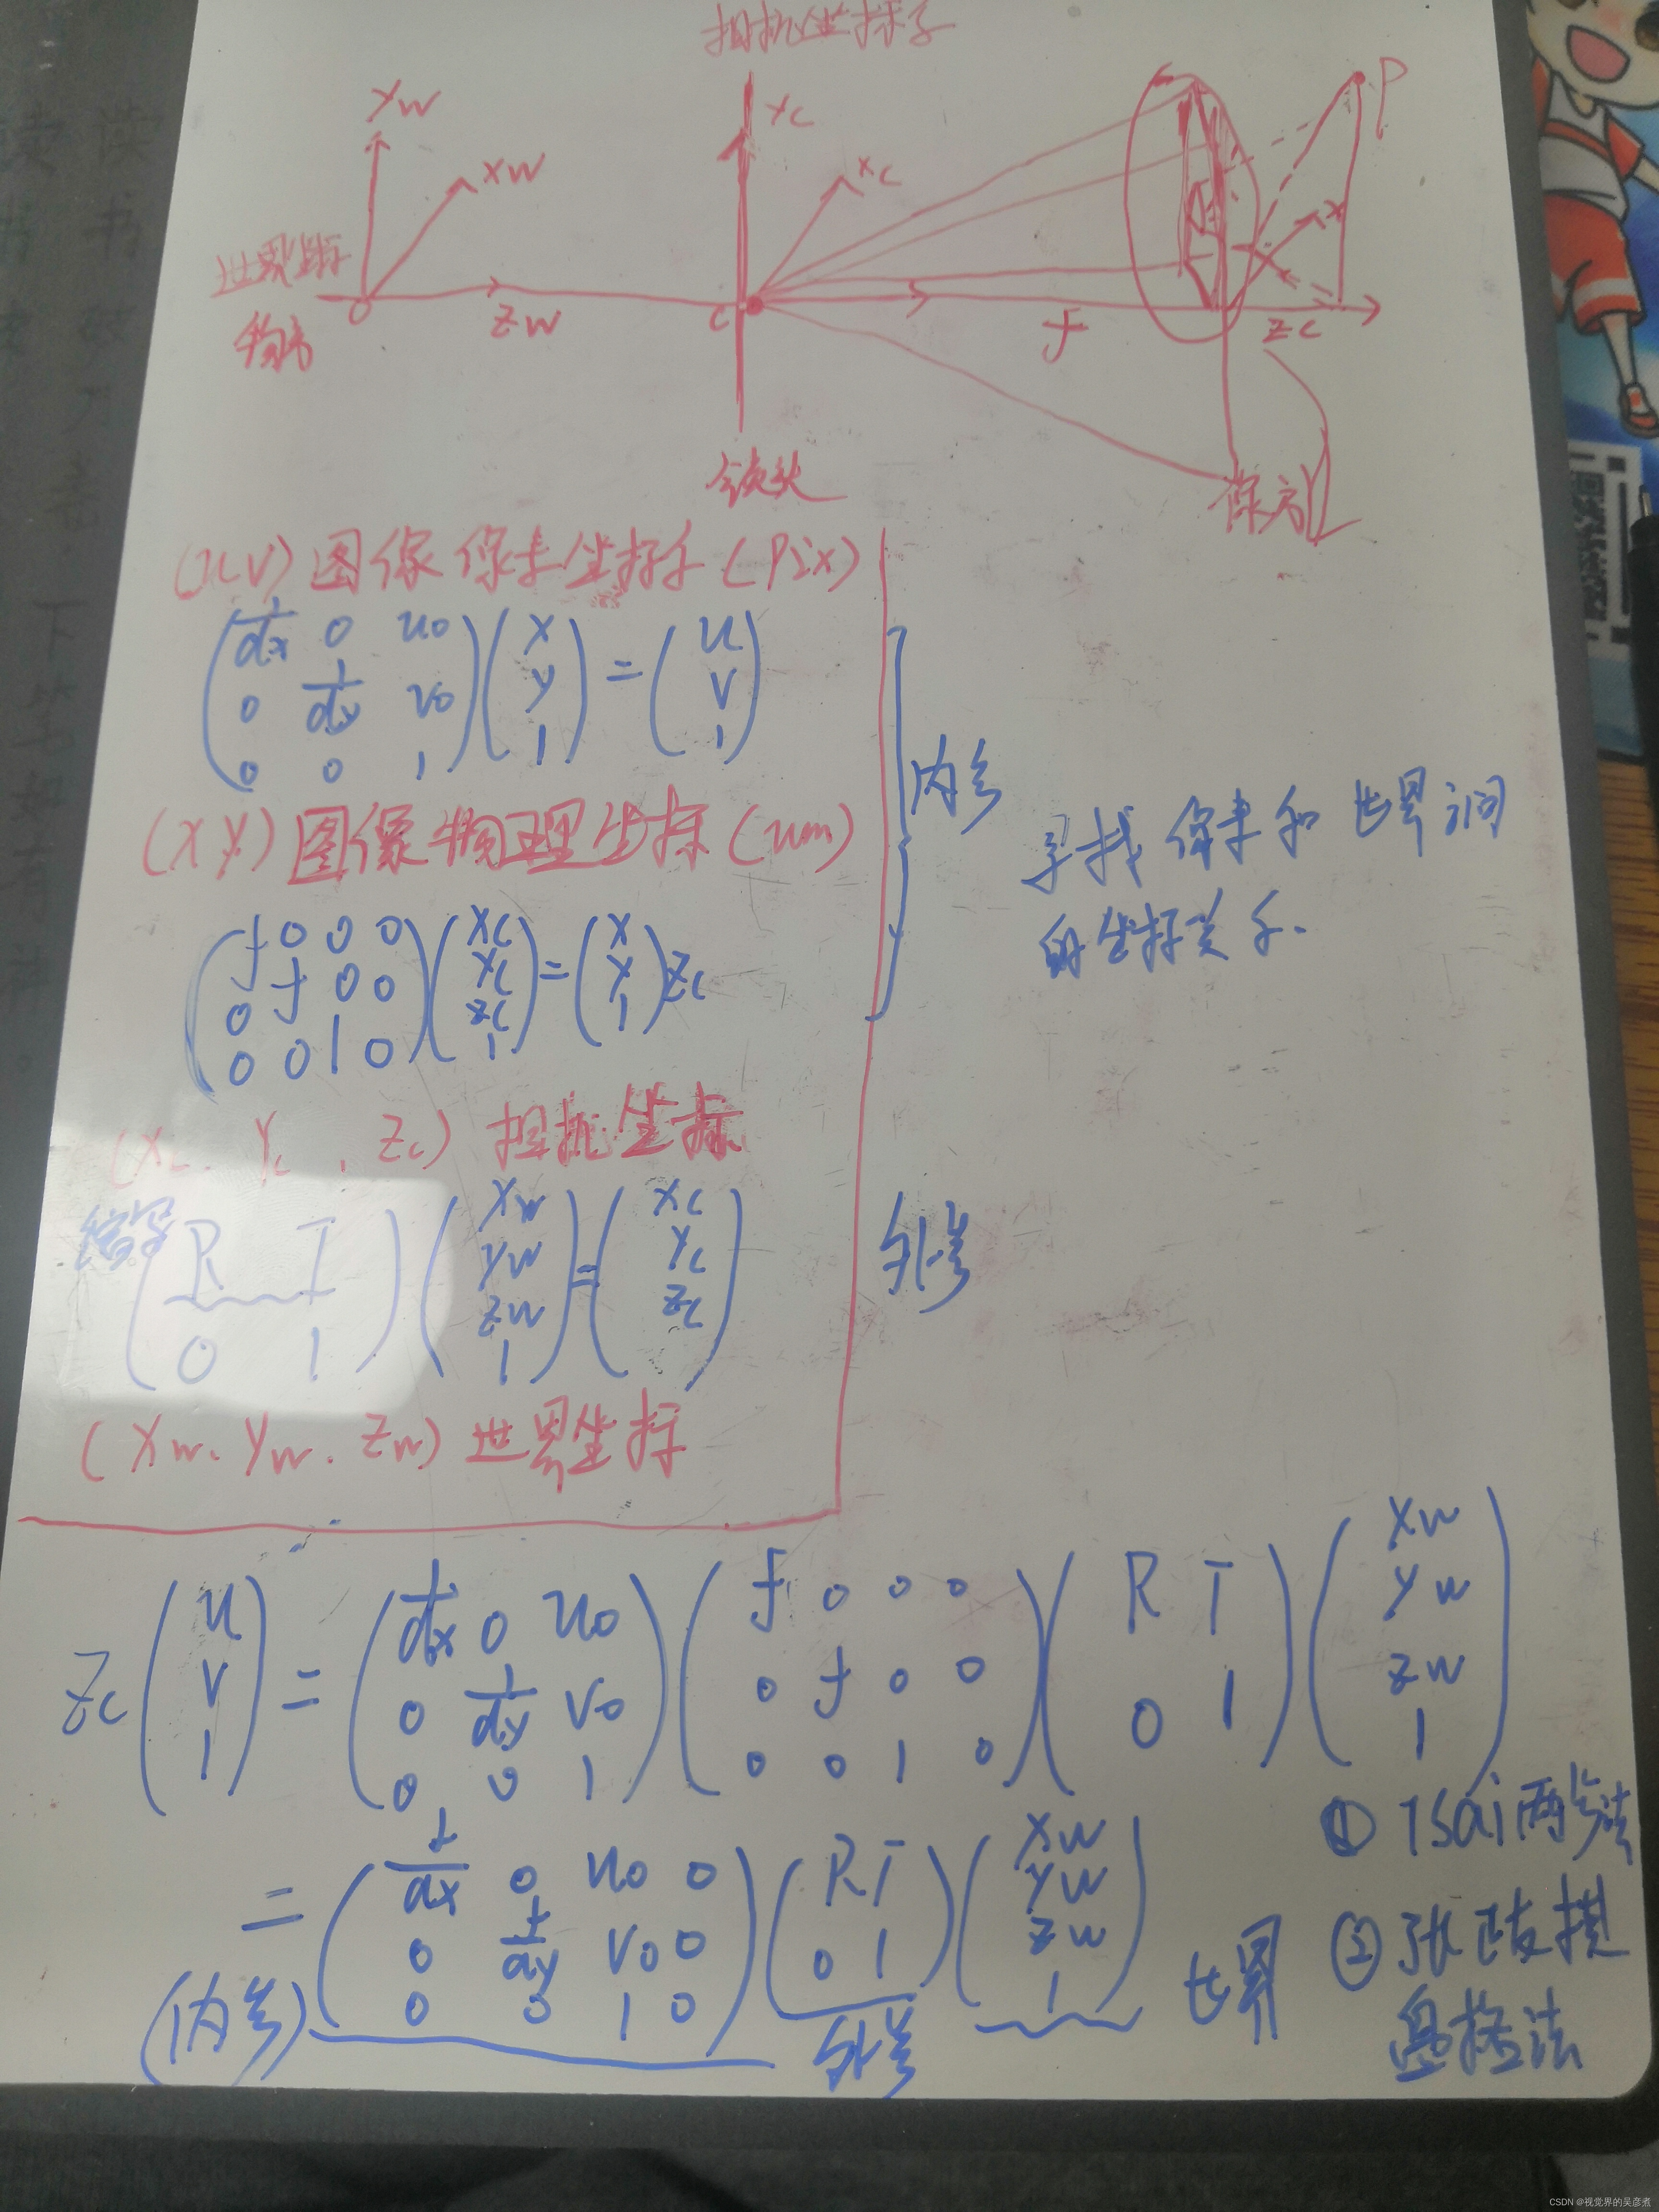 相机坐标系
Yw
Xw
世界坐标
物方
O
Zw
Yc
Xc
C
镜头
f
Zc
X
P
像方
Y
(u v) 图像像素坐标系 (Pix)
(1/dx 0 u0
0 1/dy v0
0 0 1) (x y 1) = (u v 1)
(x y) 图像物理坐标 (um)
(f 0 0 0
0 f 0 0
0 0 1 0) (Xc Yc Zc 1) = (x y 1) Zc
内参
寻找像素和世界间
的坐标关系.
(Xc. Yc. Zc) 相机坐标
缩写
(R T
0 1) (Xw Yw Zw 1) = (Xc Yc Zc)
外参
(Xw. Yw. Zw) 世界坐标
Zc (u v 1) = (1/dx 0 u0
0 1/dy v0
0 0 1) (f 0 0 0
0 f 0 0
0 0 1 0) (R T
0 1) (Xw Yw Zw 1)
= (f/dx 0 u0 0
0 f/dy v0 0
0 0 1 0) (R T
0 1) (Xw Yw Zw 1)
(内参)
外参
世界
① Tsai两步法
② 张正友棋
盘格法
CSDN @视觉界的吴彦煮